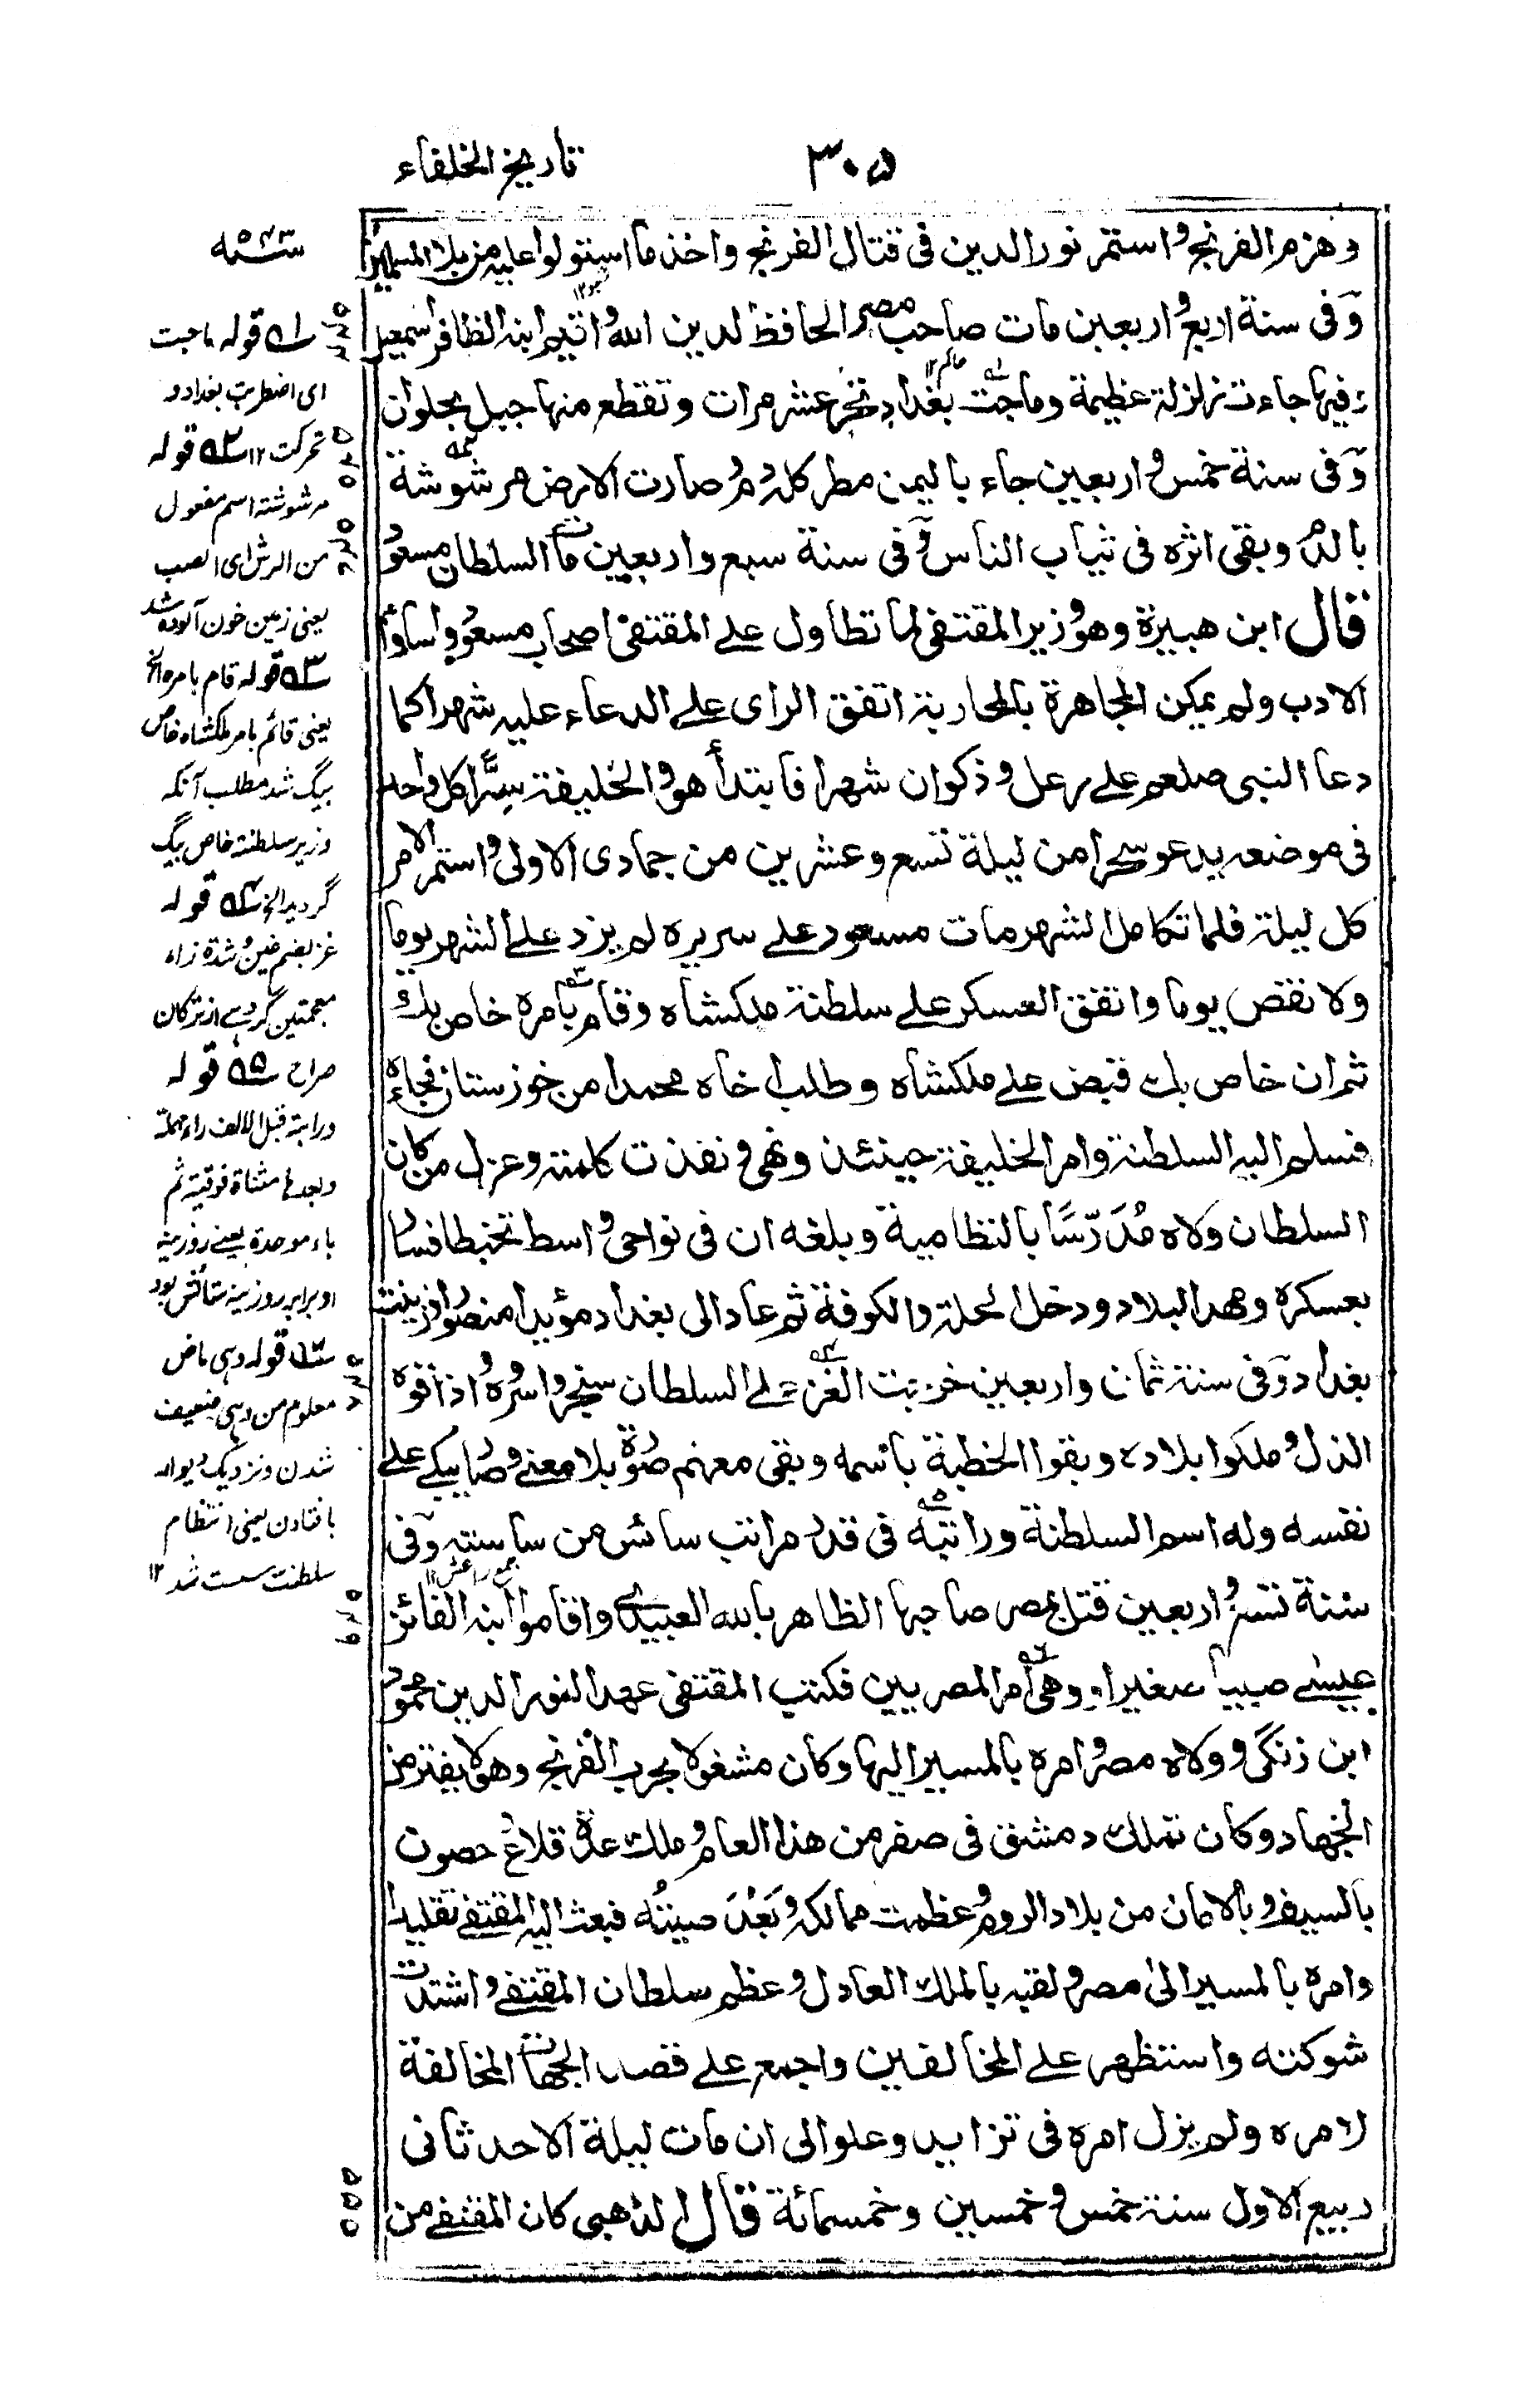 ٣٠٥
تاريخ الخلفاء
وهزم الفرنج واستمر نور الدين فى قتال الفرنج واخذ ما استولوا عليه من بلاد المسلمين
وفى سنة اربع واربعين مات صاحب مصر الحافظ لدين الله واقيم ابنه الظافر اسمعيل
وفيها جاءت زلزلة عظيمة وماجت بغداد نحو عشر مرات وتقطع منها جبل بحلوان
وفى سنة خمس واربعين جاء باليمن مطر كله دم وصارت الارض مرشوشة
بالدم وبقى اثره فى ثياب الناس وفى سنة سبع واربعين مات السلطان مسعود
قال ابن هبيرة وهو وزير المقتفى لما تطاول على المقتفى اصحاب مسعود واساؤا
الادب ولم يمكن المجاهرة بالمحاربة اتفق الراى على الدعاء عليه شهرا كما
دعا النبى صلعم على رعل وذكوان شهرا فابتدأ هو والخليفة سرًّا كل واحد
فى موضعه يدعو سحرا من ليلة تسع وعشرين من جمادى الاولى واستمر الامر
كل ليلة فلما تكامل الشهر مات مسعود على سريره لم يزد على الشهر يوما
ولا نقص يوما واتفق العسكر على سلطنة ملكشاه وقام بامره خاص بك
ثم ان خاص بك قبض على ملكشاه وطلب اخاه محمدا من خوزستان فجاءه
فسلم اليه السلطنة وامر الخليفة حينئذ ونهى ونفذت كلمته وعزل من كان
السلطان ولاه مُدَرّسًا بالنظامية وبلغه ان فى نواحى واسط تخبطا فسار
بعسكره ومهد البلاد ودخل الحلة والكوفة ثم عاد الى بغداد مؤيدا منصورا وزينت
بغداد وفى سنة ثمان واربعين خرجت الغز على السلطان سنجر واسروه واذاقوه
الذل وملكوا بلاده وبقوا الخطبة باسمه وبقى معهم صورة بلا معنى وصار يبكى على
نفسه وله اسم السلطنة وراتبه فى قدر مراتب سائس من ساسته وفى
سنة تسع واربعين قتل بمصر صاحبها الظاهر بالله العبيدى واقاموا ابنه الفائز
عيسى صبيا صغيرا ووهى امر المصريين فكتب المقتفى عهدا لنور الدين محمود
ابن زنكى وولاه مصر وامره بالمسير اليها وكان مشغولا بحرب الفرنج وهو لا يفتر من
الجهاد وكان تملك دمشق فى صفر من هذا العام وملك عدة قلاع وحصون
بالسيف وبالامان من بلاد الروم وعظمت ممالكه وبَعُدَ صيتُه فبعث اليه المقتفى تقليدا
وامره بالمسير الى مصر ولقبه بالملك العادل وعظم سلطان المقتفى واشتدت
شوكته واستظهر على المخالفين واجمع على قصد الجهات المخالفة
لامره ولم يزل امره فى تزايد وعلو الى ان مات ليلة الاحد ثانى
ربيع الاول سنة خمس وخمسين وخمسمائة قال الذهبى كان المقتفى من
قوله ماجت
اى اضطربت بغداد و
تحركت ١٢ قوله
مرشوشة اسم مفعول
من الرش اى الصب
يعنى زمين خون آلوده شد
قوله قام بامره الخ
يعنى قائم بامر ملكشاه خاص
بيگ شد مطلب آنكه
وزير سلطنة خاص بيگ
گرديد الخ قوله
غز بضم غين وشدة زاء
معجمتين گروهے از تركان
صراح قوله
وراتبه قبل الالف راء مهملة
وبعدها مثناة فوقية ثم
باء موحدة يعنے روزينہ
او برابر روزينہ سائس بود
قوله وہى ماض
معلوم من وہى ضعيف
شدن ونزديك ديوار
بافتادن يعنى انتظام
سلطنت سست شد ١٢
٥٥٥